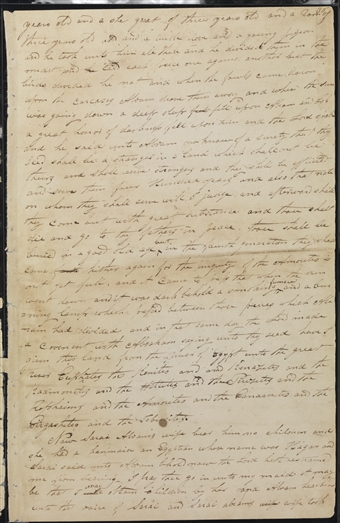 years old and a she goat of three years old and a Ram of
three years old and a turtle dove and a young pigeon
and he took unto him all these and he divided them in the
midst and he laid each piece one against another but the
birds divided he not and when the fowls came down
upon the carcasses Abram drove them away and when the sun
was going down a deep sleep fell upon Abram and lo
a great horror of darkness fell upon him and the Lord
And he said unto Abram know of a surety that thy
seed shall be a stranger in a land which shall not be
theirs and shall serve strangers and they shall be afflicted
and serve them four hundred years and also that nation
on whom they shall serve will I judge and afterward shall
they come out with great substance and thou shalt
die and go to thy fathers in peace thou shalt be
buried in a good old age in the fourth generation they shall
come hither again for the iniquity of the Amorites is
not yet full and it came to pass that when the sun
went down and it was dark behold a smoking furnace and a
burning lamp which passed between those pieces which
Abram had divided and in the same day the Lord made
a Covenant with Abraham saying unto thy seed have I
given this land from the river of Egypt unto the great
river Euphrates the Kenites and and Kenazites and the
Kadmonites and the Hittites and the Perizites and the
Rephaims and the Amorites and the Canaanites and the
Girgashites and the Jebusites
Now Sarai Abrams wife bear him no children and
she had a handmaid an Egyptian whose name was Hagar and
Sarai said unto Abram behold now the Lord hath restrained
me from bearing I pray thee go in unto my maid it may
be that I may obtain children by her and Abram hearkened
unto the voice of Sarai and Sarai Abrams wife took